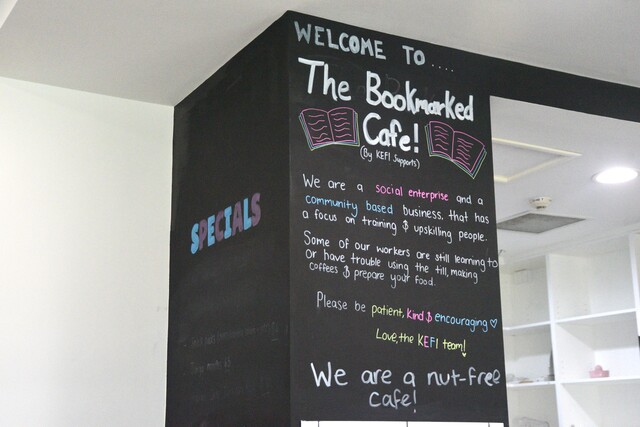 SPECIALS
WELCOME TO....
The Bookmarked
Cafe!
(By KEFI Supports)
We are a social enterprise and a
community based business, that has
a focus on training & upskilling people.
Some of our workers are still learning to
Or have trouble using the till, making
coffees & prepare your food.
Please be patient, kind & encouraging ♡
Love, the KEFI team!
We are a nut-free
cafe!